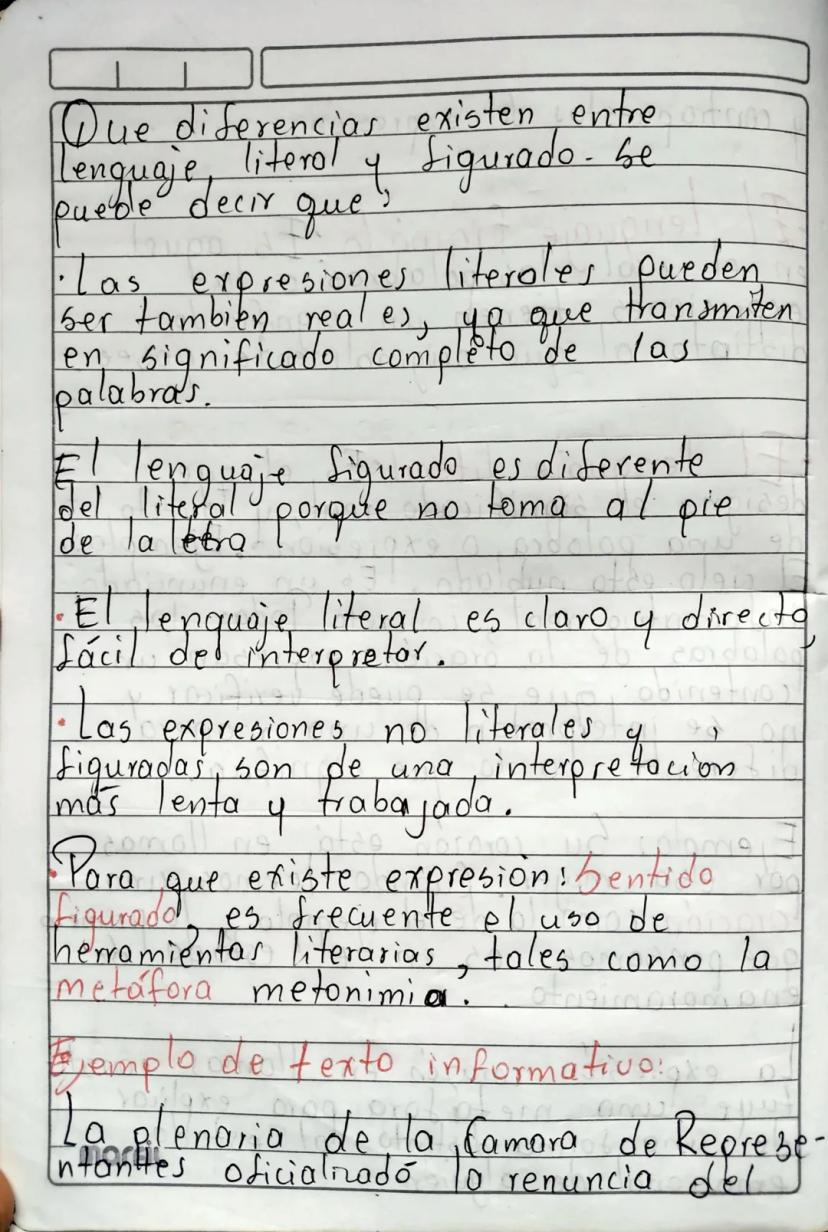 Que diferencias existen entre
lenguaje literal y figurado. se
puede decir que,
· Las expresiones literales pueden
ser tambien reales, ya que transmiten
en significado completo de las
palabras.
El lenguaje figurado es diferente
del literal porque no toma al pie
de la letra
· El lenguaje literal es claro y directo,
fácil de interpretar.
· Las expresiones no literales y
figuradas, son de una interpretación
más lenta y trabajada.
· Para que existe expresión: Sentido
figurado, es frecuente el uso de
herramientas literarias, tales como la
metáfora metonimia.
Ejemplo de texto informativo:
La plenaria de la Camara de Represe-
ntantes oficializadó la renuncia del